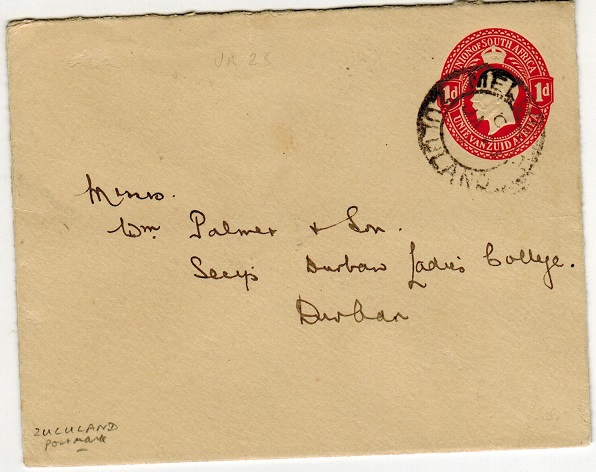 UR 28
UNION OF SOUTH AFRICA
1d 1d
UNIE VAN ZUID AFRIKA
MEL
LAND
Messrs.
Wm Palmer & Son.
Secys Durban Ladies College.
Durban
ZULULAND
postmark